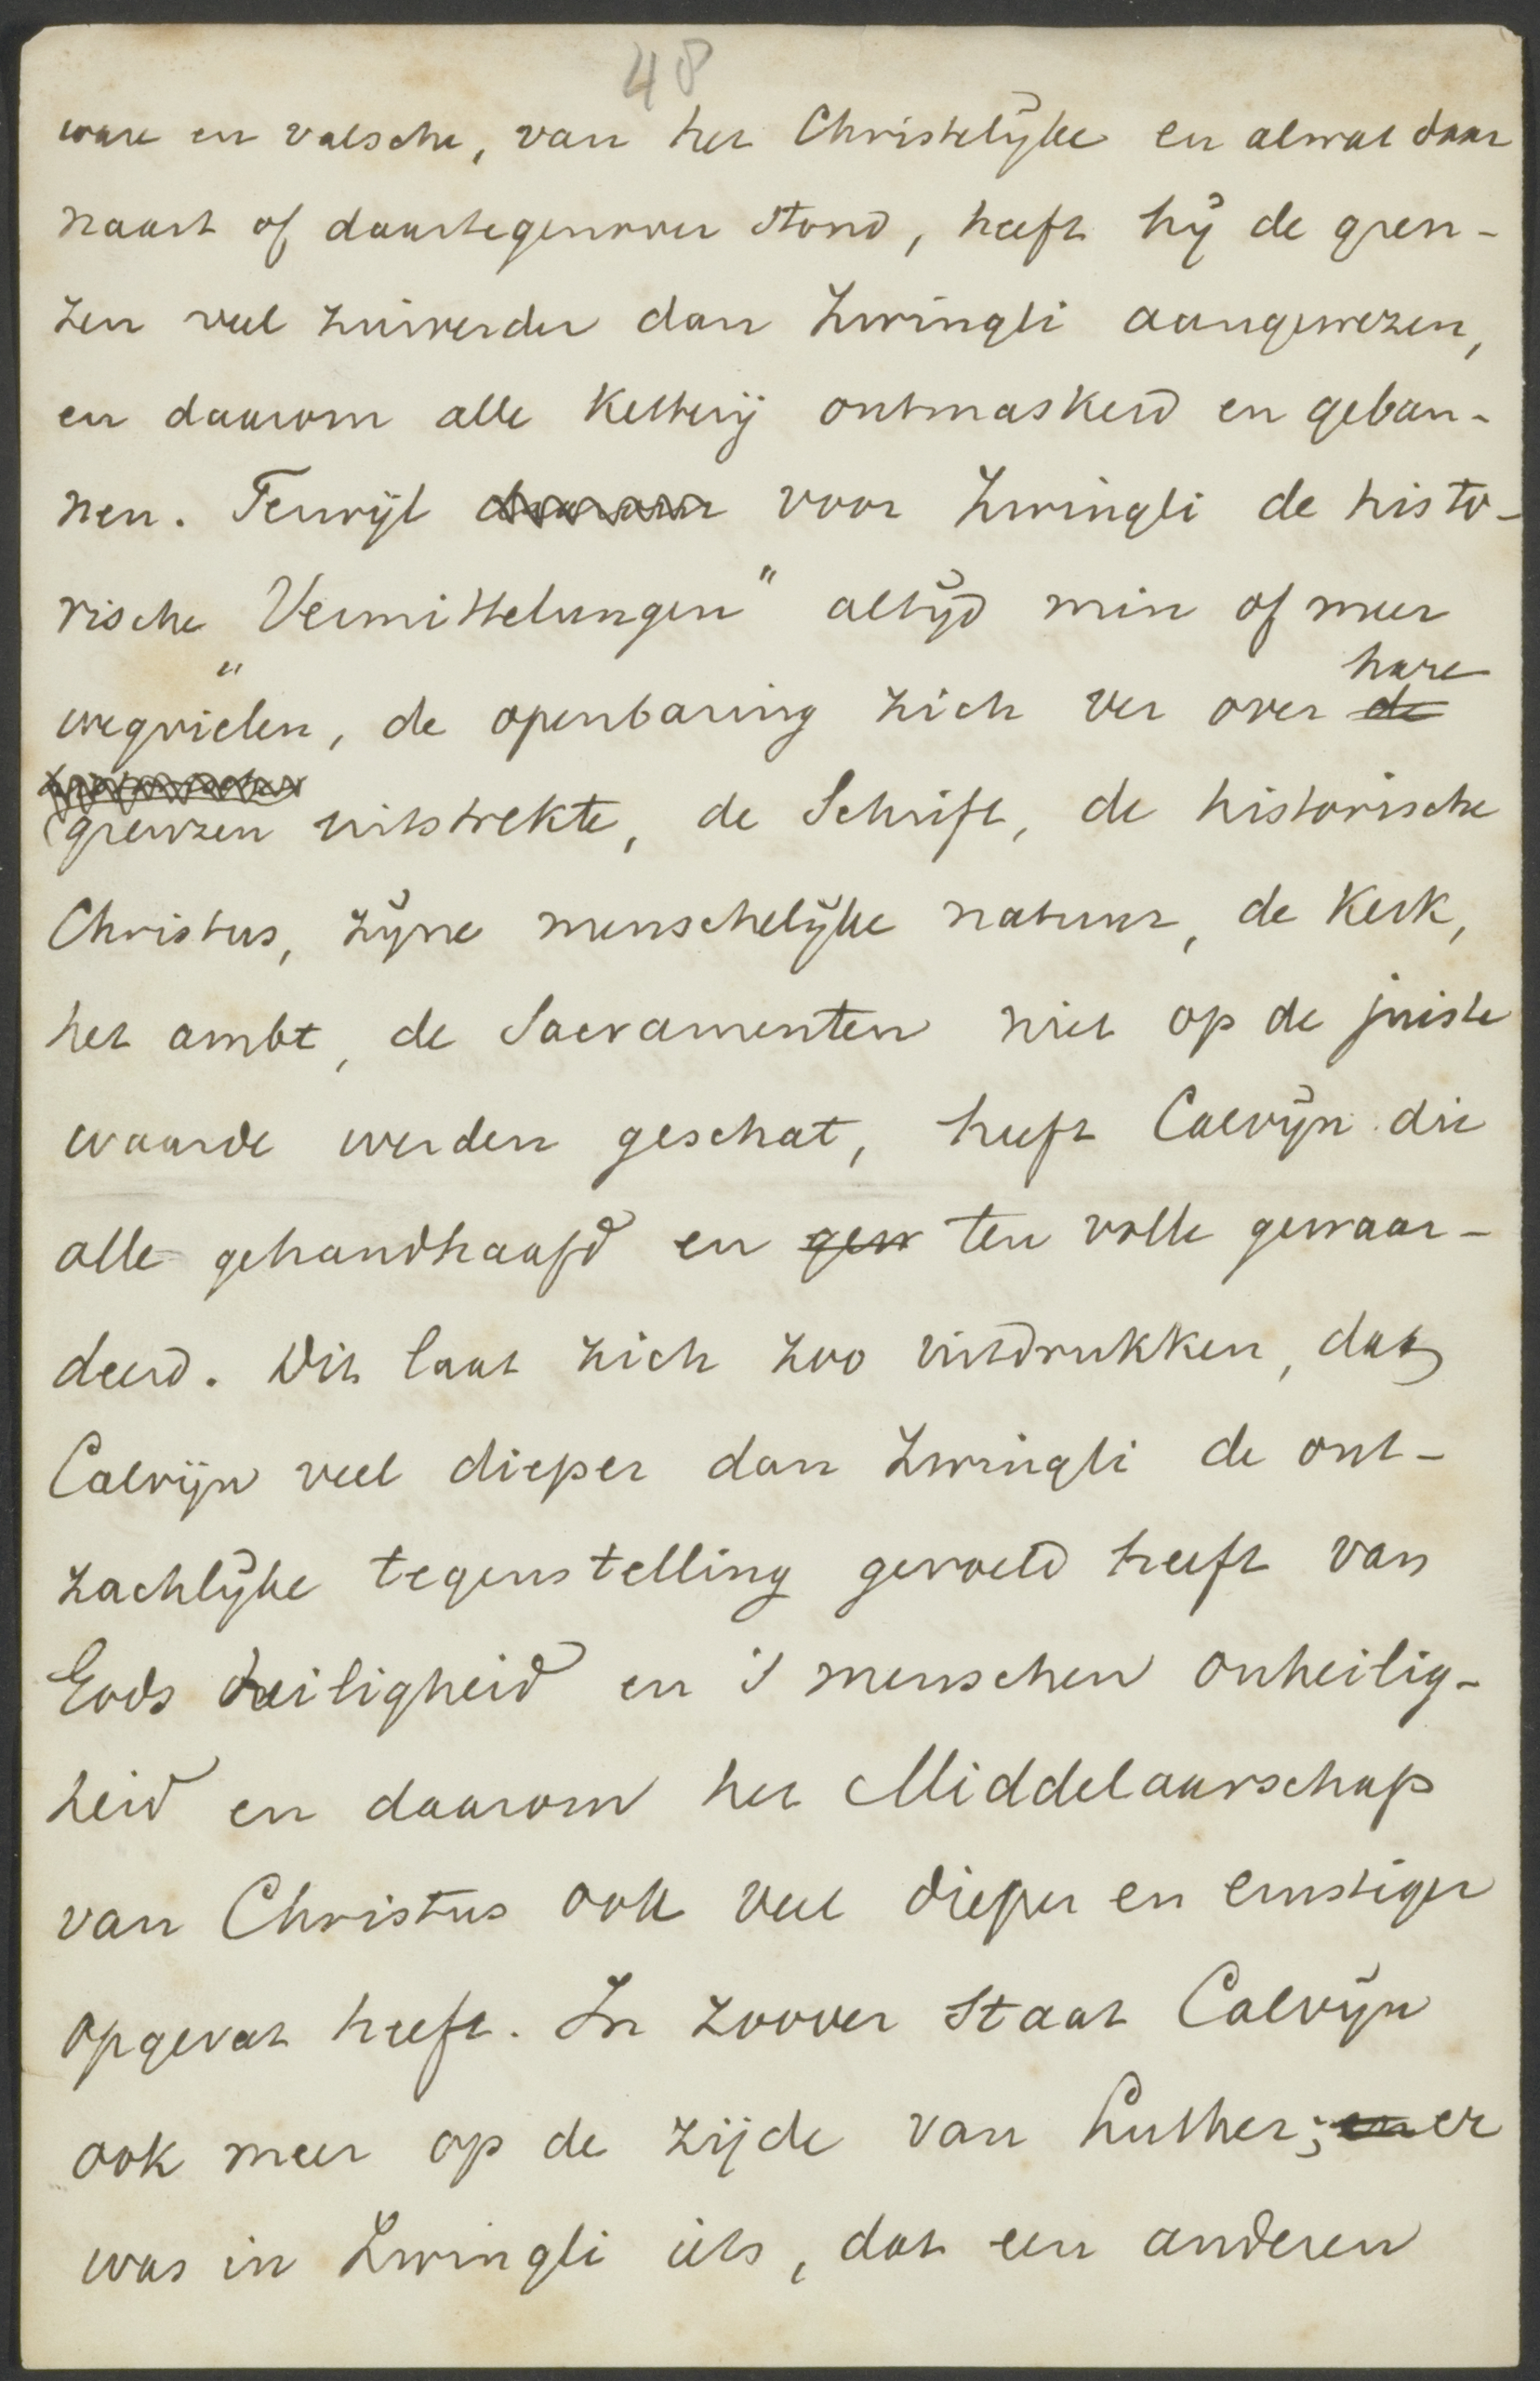 48
ware en valsche, van het Christelijke en alwat daar
naast of daartegenover stond, heeft hij de gren-
zen veel zuiverder dan Zwingli aangewezen,
en daarom alle ketterij ontmaskerd en geban-
nen. Terwijl daarom voor Zwingli de histo-
rische „Vermittelungen" altijd min of meer
wegvielen, de openbaring zich ver over de hare
grenzen uitstrekte, de Schrift, de historische
Christus, zijne menschelijke natuur, de Kerk,
het ambt, de Sacramenten niet op de juiste
waarde werden geschat, heeft Calvijn die
alle gehandhaafd en gew ten volle gewaar-
deerd. Dit laat zich zoo uitdrukken, dat
Calvijn veel dieper dan Zwingli de ont-
zachlijke tegenstelling gevoeld heeft van
Gods heiligheid en 's menschen onheilig-
heid en daarom het Middelaarschap
van Christus ook veel dieper en ernstiger
opgevat heeft. In zoover staat Calvijn
ook meer op de zijde van Luther; en er
was in Zwingli iets, dat een anderen